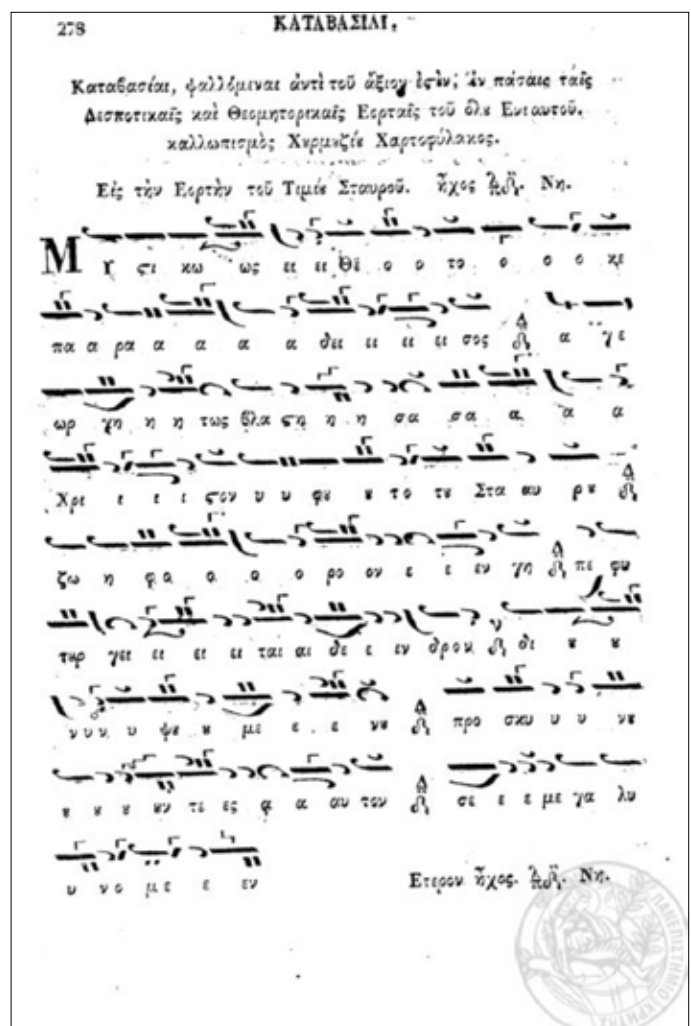 278
ΚΑΤΑΒΑΣΙΑΙ.
Καταβασίαι, ψαλλόμεναι ἀντὶ τοῦ ἄξιον ἐςὶν; Ἐν πάσαις ταῖς
Δεσποτικαῖς καὶ Θεομητορικαῖς Εορταῖς τοῦ ὅλȣ Ενιαυτοῦ.
καλλωπισμὸς Χυρμȣζίȣ Χαρτοφύλακος.
Εἰς τὴν Εορτὴν τοῦ Τιμίȣ Σταυροῦ. ἦχος Νη.
Μ υ ςι κω ως ει ει Θε ο ο το ο ο ο κε
πα α ρα α α α α δει ει ει ει σος α γε
ωρ γη η η τως βλα ςη η η σα σα α α α
Χρι ι ι ι ςον υ υ φȣ ȣ το τȣ Σταυ αυ ρȣ
ζω η φο ο ο ο ρο ον ε ε εν γη πε φυ
τȣρ γει ει ει ει ται αι δε ε εν δρον δι ȣ ȣ
νυν υ ψȣ ȣ με ε ε νȣ προ σκυ υ υ νȣ
ȣ ȣ ȣ ȣν τε ες α α αυ τον σε ε ε με γα λυ
υ νο με ε εν
Ετερον ἦχος. Νη.
ΠΑΝΕΠΙΣΤΗΜΙΟ ΚΡΗΤΗΣ